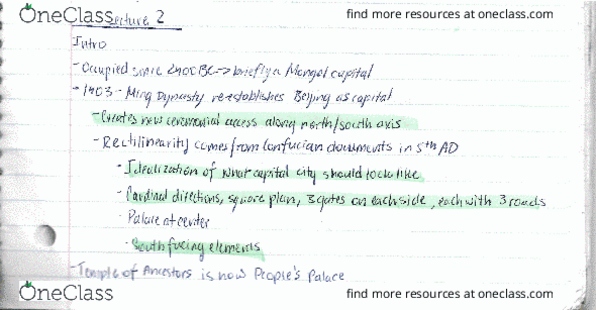 OneClass find more resources at oneclass.com
Lecture 2
Intro
- Occupied since 2400BC -> briefly a Mongol capital
- 1403 - Ming Dynasty re-establishes Beijing as capital
- Creates new ceremonial access along north/south axis
- Rectilinearity comes from Confucian documents in 5th AD
- Idealization of what capital city should look like
- Cardinal directions, square plan, 3 gates on each side, each with 3 roads
- Palace at center
- South facing elements
- Temple of Ancestors is now People's Palace
OneClass find more resources at oneclass.com